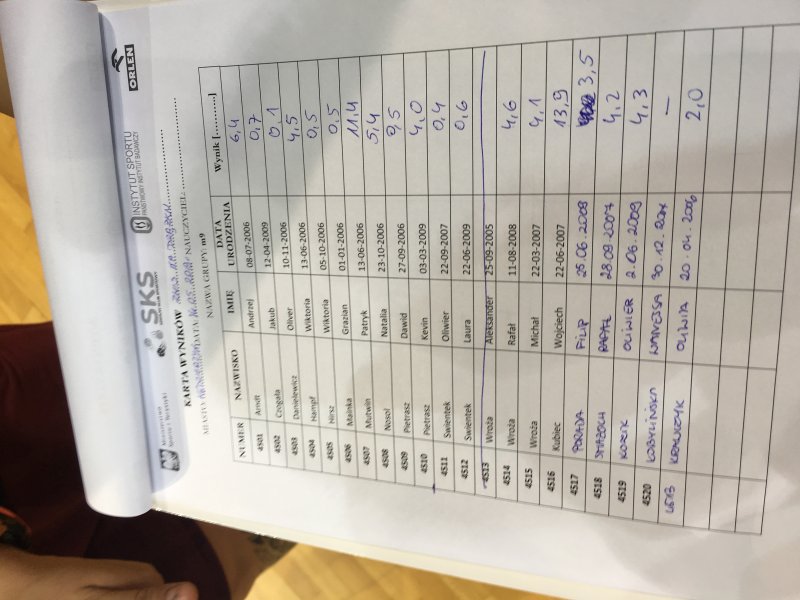 SKS
INSTYTUT SPORTU
PAŃSTWOWY INSTYTUT BADAWCZY
ORLEN
KARTA WYNIKÓW
MIASTO DATA NAUCZYCIEL:
NAZWA GRUPY: m9
NUMER NAZWISKO IMIĘ DATA URODZENIA Wynik [...........]
4S01 Arndt Andrzej 08-07-2006 6,4
4S02 Czogala Jakub 12-04-2009 0,7
4S03 Danielewicz Oliver 10-11-2006 0,1
4S04 Hampf Wiktoria 13-06-2006 4,5
4S05 Nirsz Wiktoria 05-10-2006 0,5
4S06 Mainka Grazian 01-01-2006 0,5
4S07 Mutwin Patryk 13-06-2006 11,4
4S08 Nosol Natalia 23-10-2006 5,4
4S09 Pietrasz Dawid 27-09-2006 9,5
4S10 Pietrasz Kevin 03-03-2009 4,0
4S11 Swientek Oliwier 22-09-2007 0,4
4S12 Swientek Laura 22-06-2009 0,6
4S13 Wroża Aleksander 25-09-2005
4S14 Wroża Rafał 11-08-2008 4,6
4S15 Wroża Michał 22-03-2007 4,1
4S16 Kubiec Wojciech 22-06-2007 13,9
4S17 PORADA FILIP 25.06.2008 3,5
4S18 RAFAŁ 28.09.2007 4,2
4S19 OLIWIER 2.06.2009 4,3
4S20 30.12. —
4S13 KRAWCZYK OLIWIA 20.04.2006 2,0